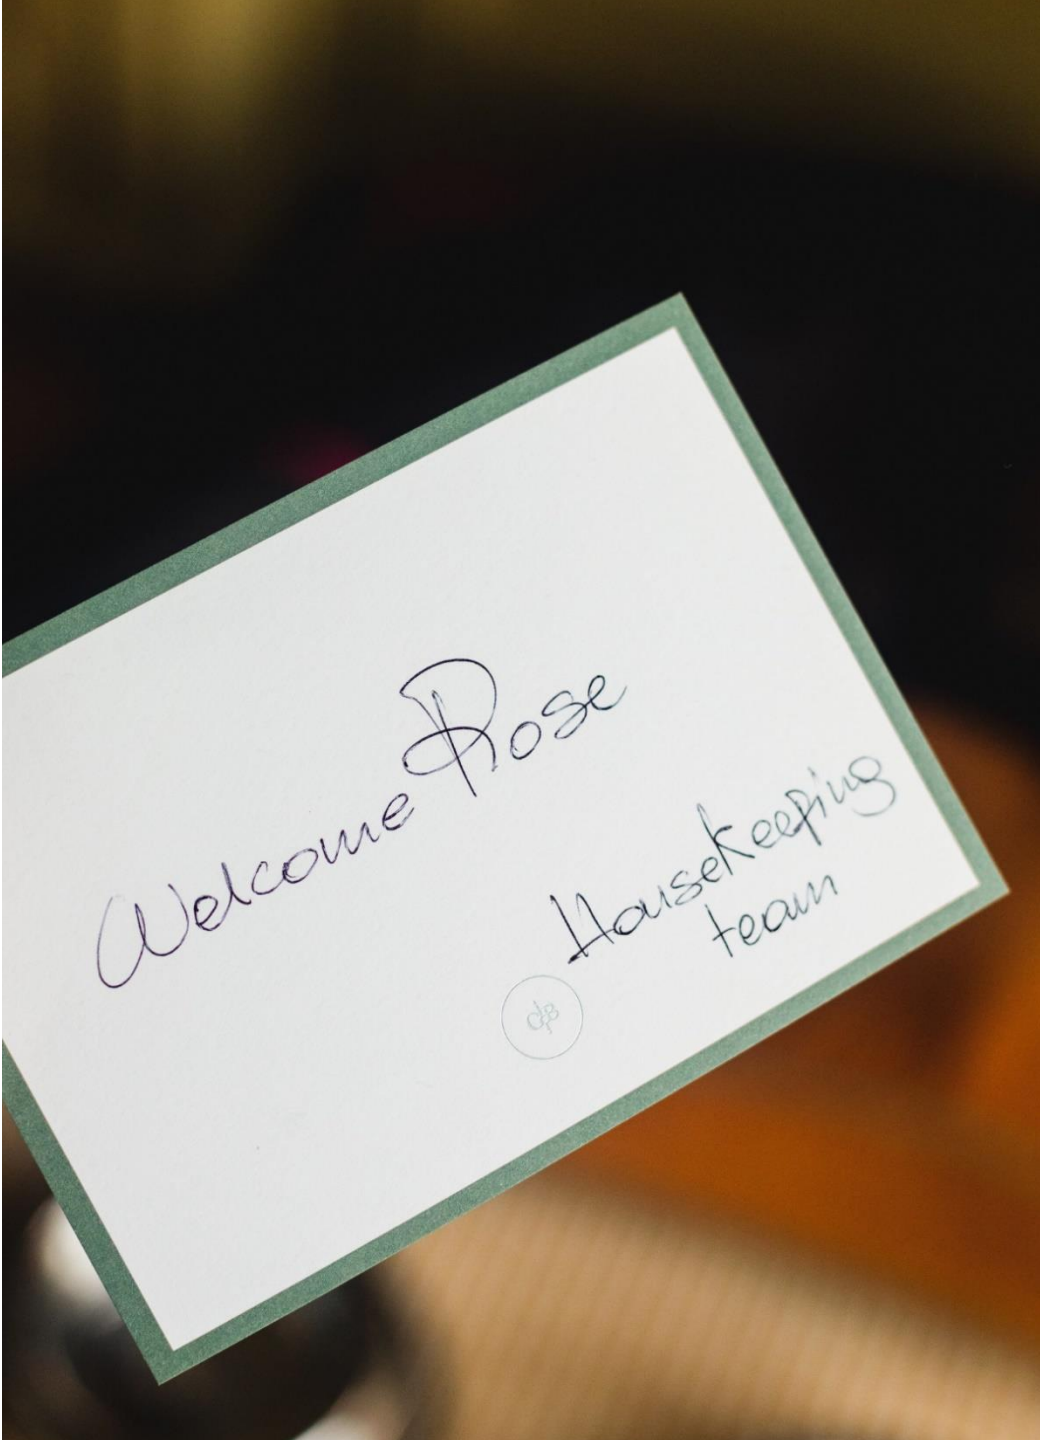 Welcome Rose
Housekeeping
team